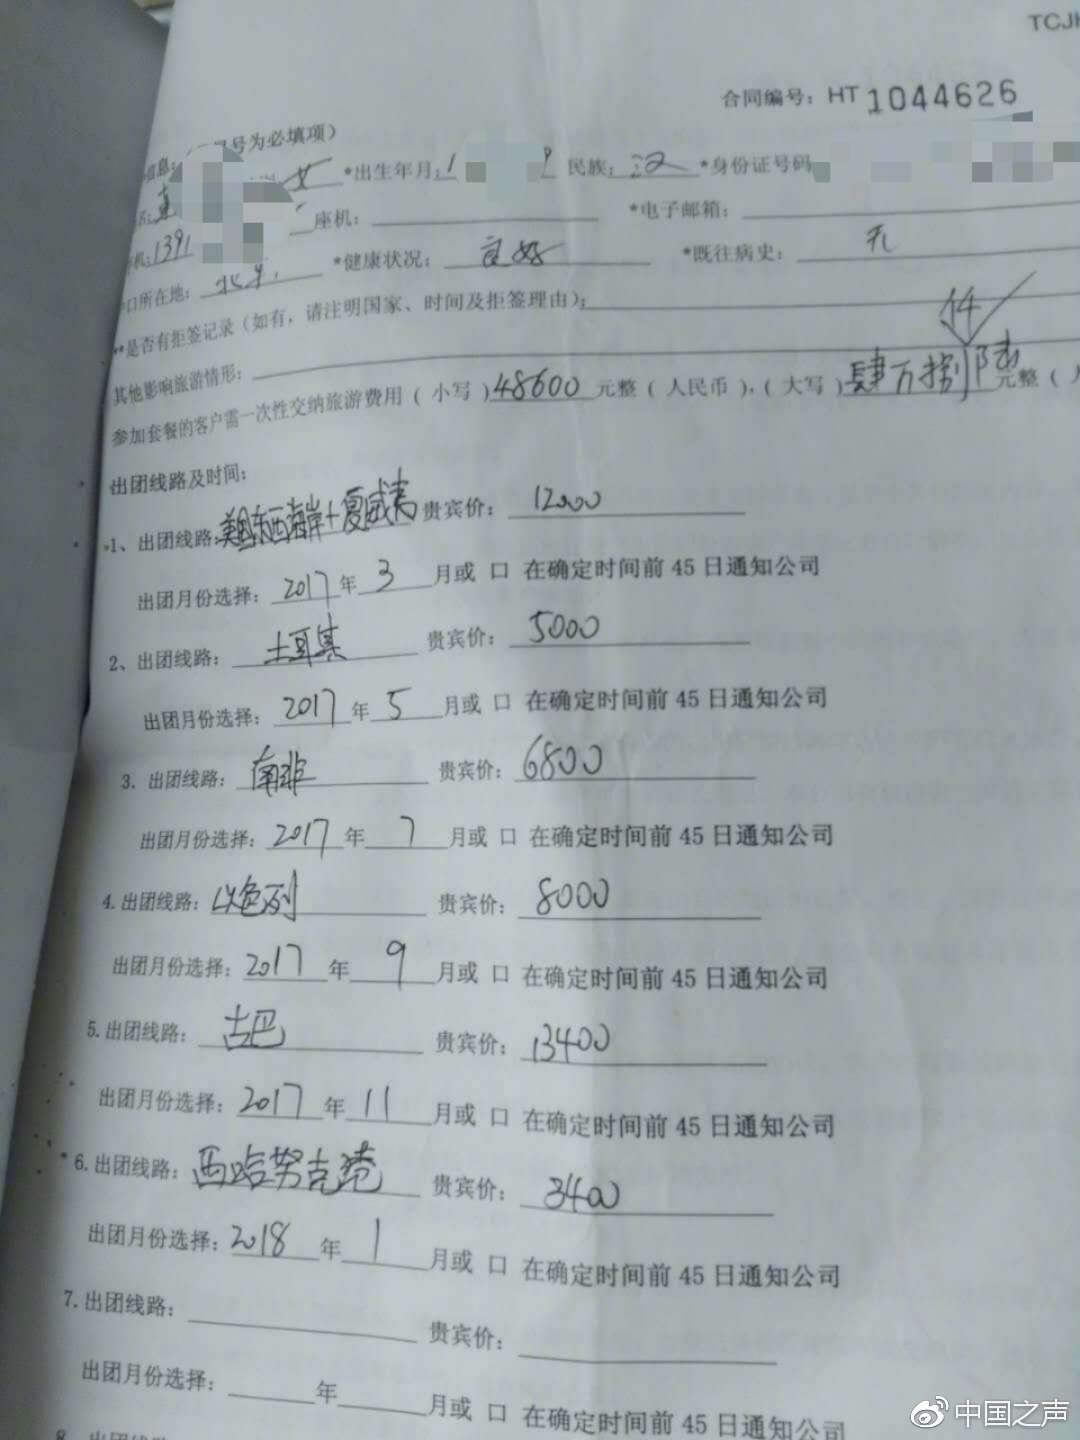 TCJH
合同编号：HT 1044626
信息：号为必填项）
女 *出生年月：1 民族：汉 *身份证号码
座机： *电子邮箱：
机：1391
*健康状况：良好 *既往病史：无
口所在地：北京
**是否有拒签记录（如有，请注明国家、时间及拒签理由）：
其他影响旅游情形：
参加套餐的客户需一次性交纳旅游费用（小写）48600元整（人民币），（大写）肆万捌仟陆元整（人
出团线路及时间：
1、出团线路：美国东西海岸+夏威夷 贵宾价：12000
出团月份选择：2017年3月或 口 在确定时间前 45 日通知公司
2、出团线路：土耳其 贵宾价：5000
出团月份选择：2017年5月或 口 在确定时间前 45 日通知公司
3. 出团线路：南非 贵宾价：6800
出团月份选择：2017年7月或 口 在确定时间前 45 日通知公司
4.出团线路：以色列 贵宾价：8000
出团月份选择：2017年9月或 口 在确定时间前 45 日通知公司
5.出团线路：古巴 贵宾价：13400
出团月份选择：2017年11月或 口 在确定时间前 45 日通知公司
6.出团线路：西哈努克港 贵宾价：3400
出团月份选择：2018年1月或 口 在确定时间前 45 日通知公司
7.出团线路： 贵宾价：
出团月份选择： 年 月或 口 在确定时间前 45 日通知公司
8. 出团线路
中国之声